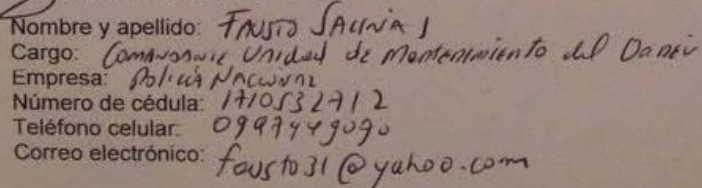 Nombre y apellido: Fausto Salinas
Cargo: Comandante Unidad de Mantenimiento del Danev
Empresa: Policía Nacional
Número de cédula: 1710532712
Teléfono celular: 0997449090
Correo electrónico: fausto31@yahoo.com